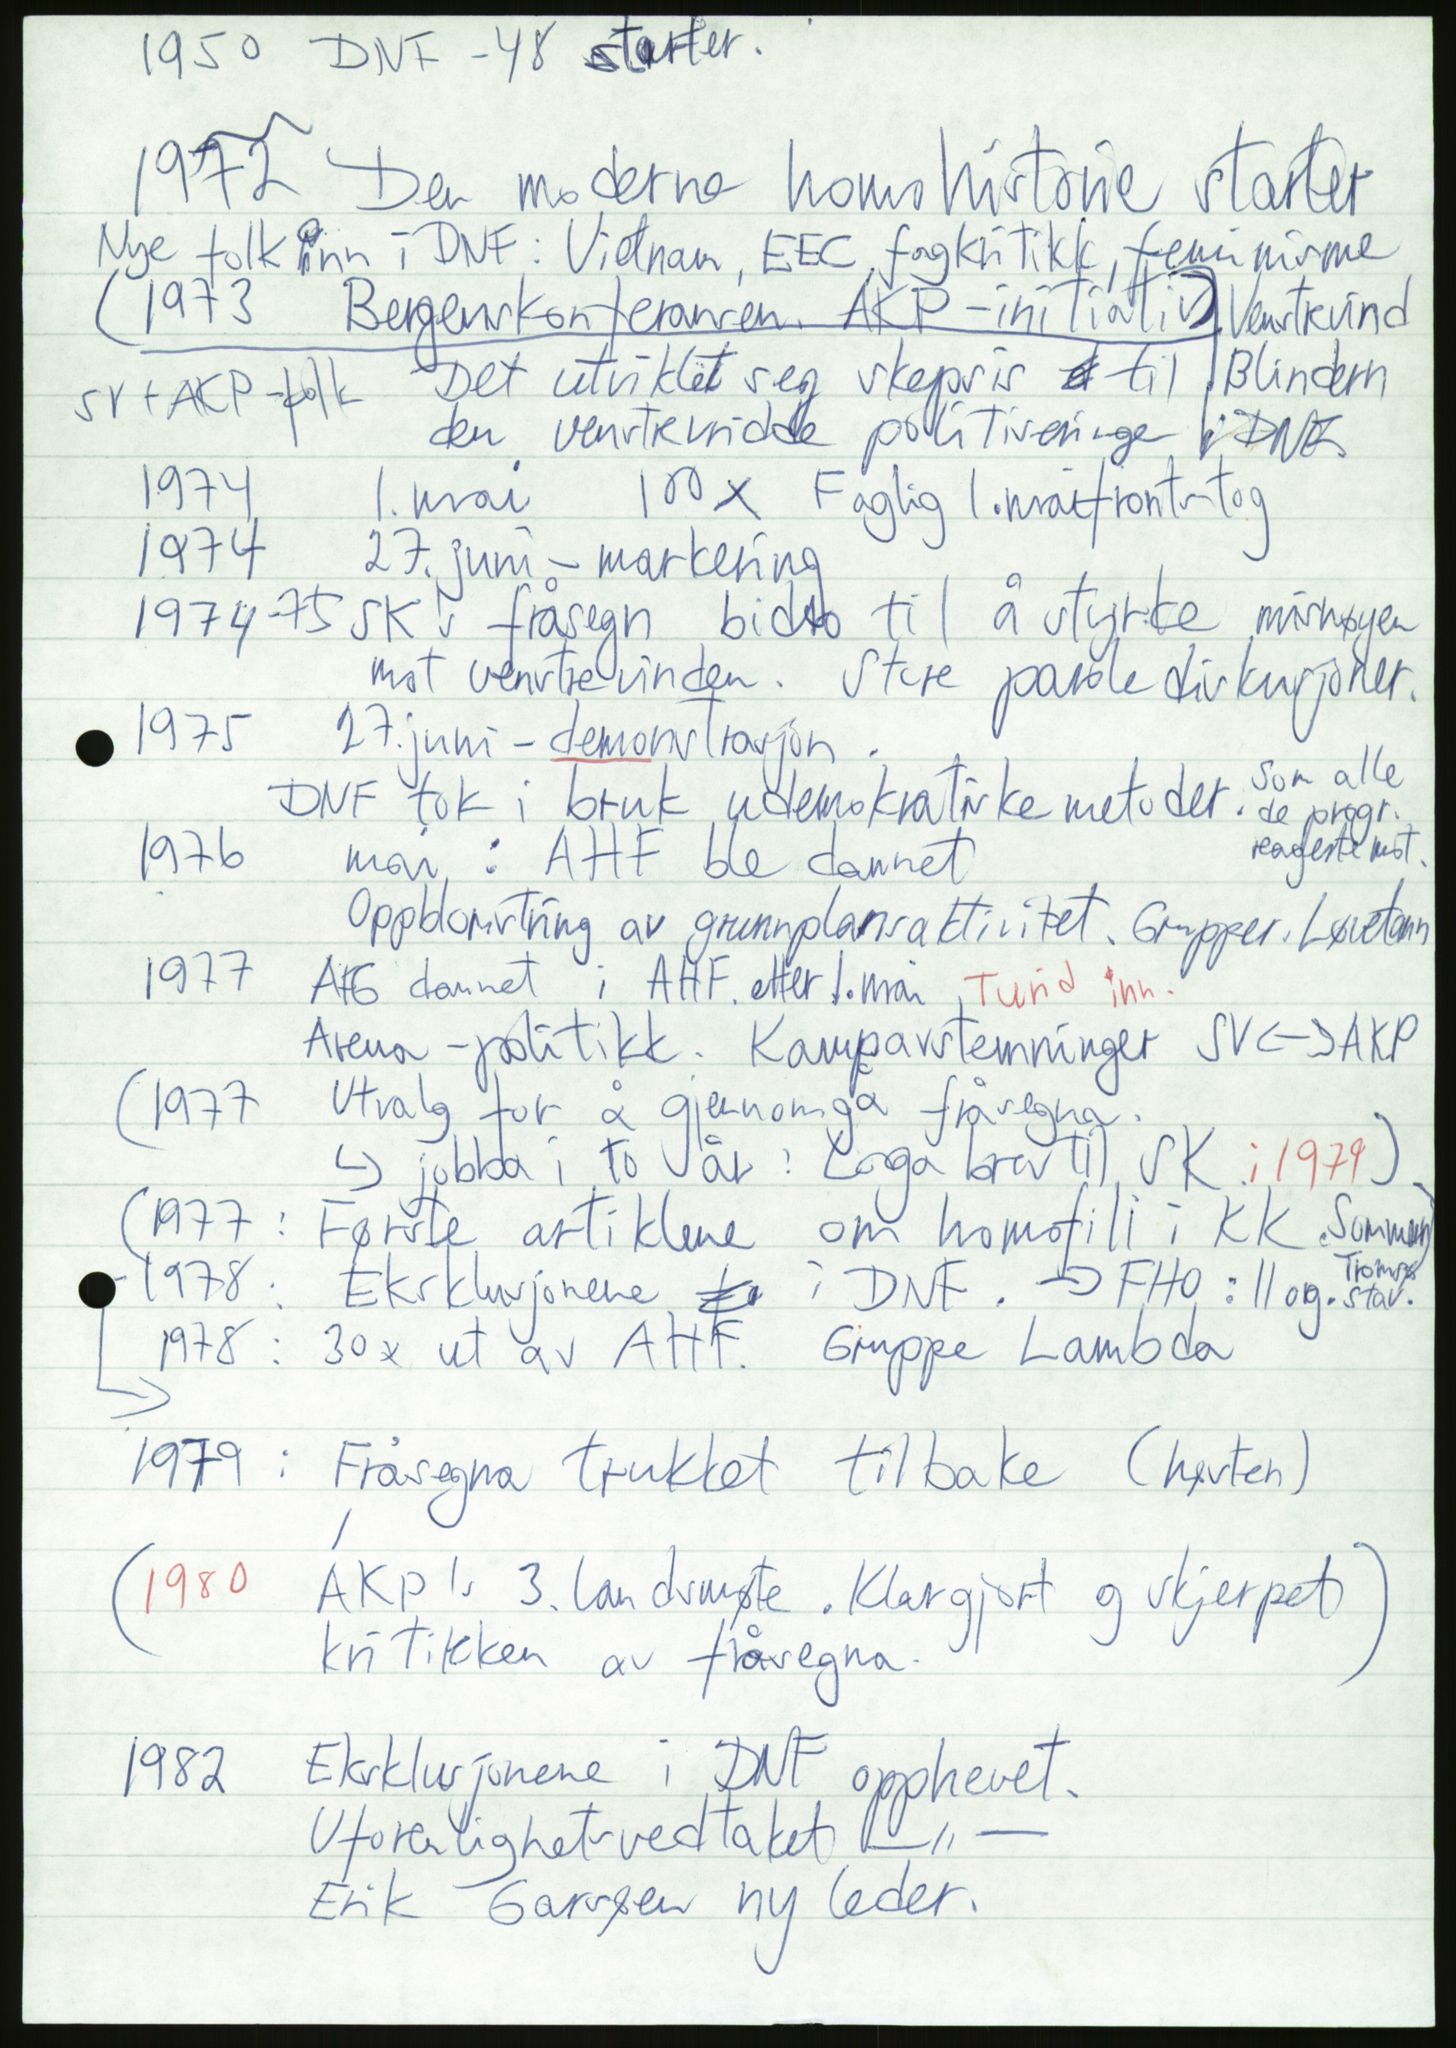 1950 DNF -48 starter.
1972 Den moderne homohistorie starter
Nye folk inn i DNF: Vietnam, EEC, fagkritikk, feminisme
(1973 Bergenskonferansen. AKP-initiativ) Venstrevind
SV + AKP-folk Det utviklet seg skepsis til Blindern
den venstrevridde politiseringen i DNF
1974 1. mai 100 x Faglig 1. maifronts tog
1974 27. juni - markering
1974-75 SK's fråsegn bidro til å styrke misnøyen
mot venstrevinden. Store parolediskusjoner.
1975 27. juni - demonstrasjon.
DNF tok i bruk udemokratiske metoder. som alle
de progr.
reagerte mot.
1976 mai: AHF ble dannet
Oppblomstring av grunnplansaktivitet. Grupper. Løvetann
1977 AHG dannet i AHF. etter 1. mai Turid inn.
Arena-politikk. Kampavstemninger SV <-> AKP
(1977 Utvalg for å gjennomgå fråsegna.
↳ jobba i to år: Laga brev til SK i 1979)
(1977: Første artiklene om homofili i KK. Sommeren)
1978: Eksklusjonene i DNF. → FHO: 11 org. Tromsø
Stav.
1978: 30x ut av AHF. Gruppe Lambda
1979: Fråsegna trukket tilbake (høsten)
(1980 AKP's 3. landsmøte. Klargjort og skjerpet
kritikken av fråsegna.)
1982 Eksklusjonene i DNF opphevet.
Uforenlighetsvedtaket —〃—
Erik Garsøen ny leder.